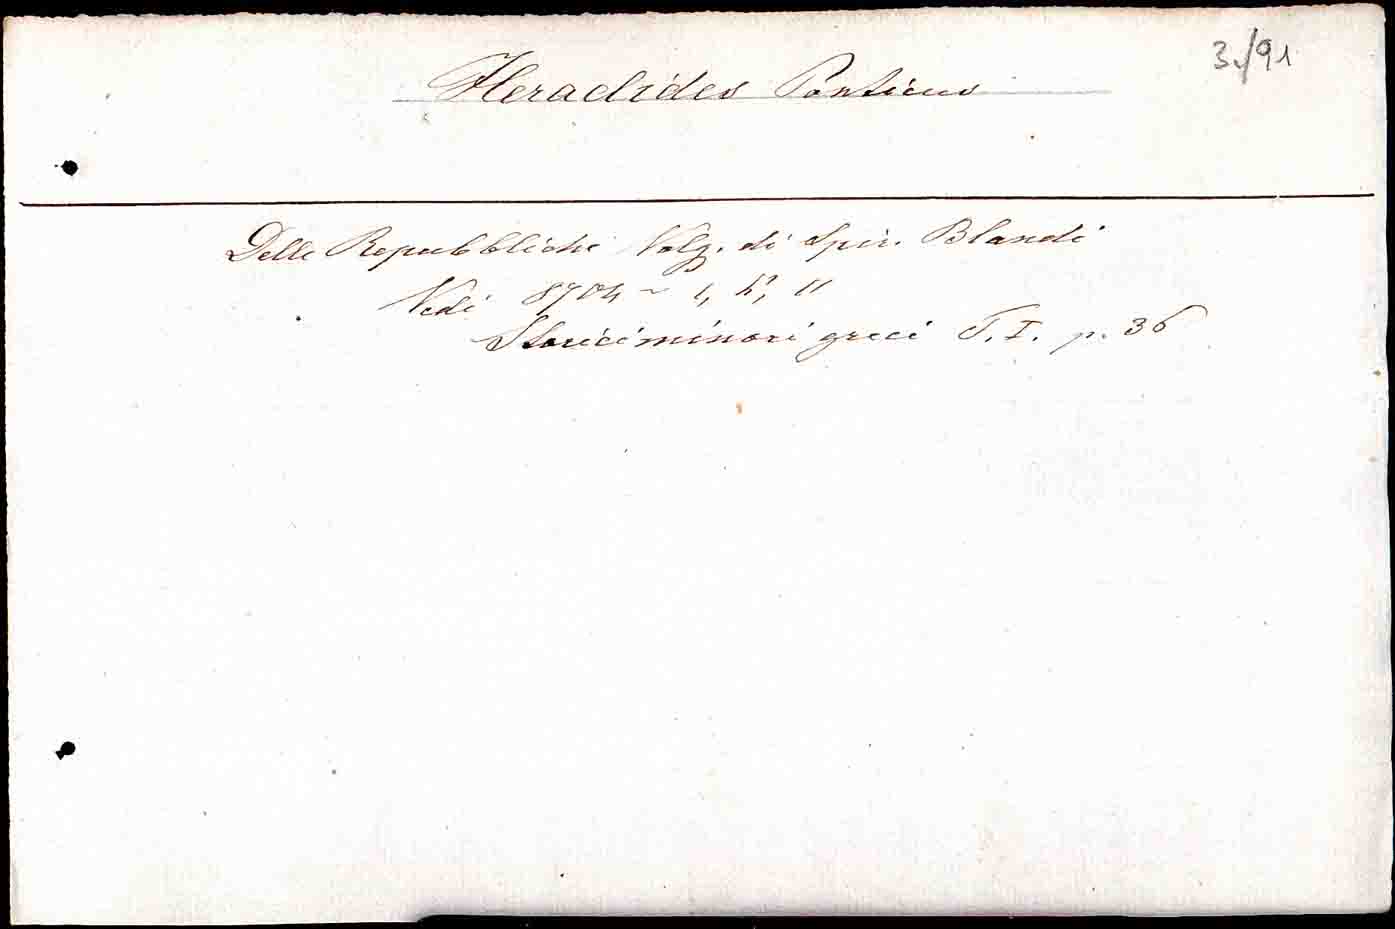 3./91
Heraclides Ponticus
Delle Repubbliche Volg. di Spir. Blandi
Vedi 8704
Storici minori greci T. I. p. 36